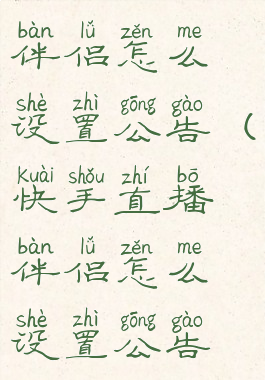 bàn lǚ zěn me
伴侣怎么
shè zhì gōng gào
设置公告（
kuài shǒu zhí bō
快手直播
bàn lǚ zěn me
伴侣怎么
shè zhì gōng gào
设置公告